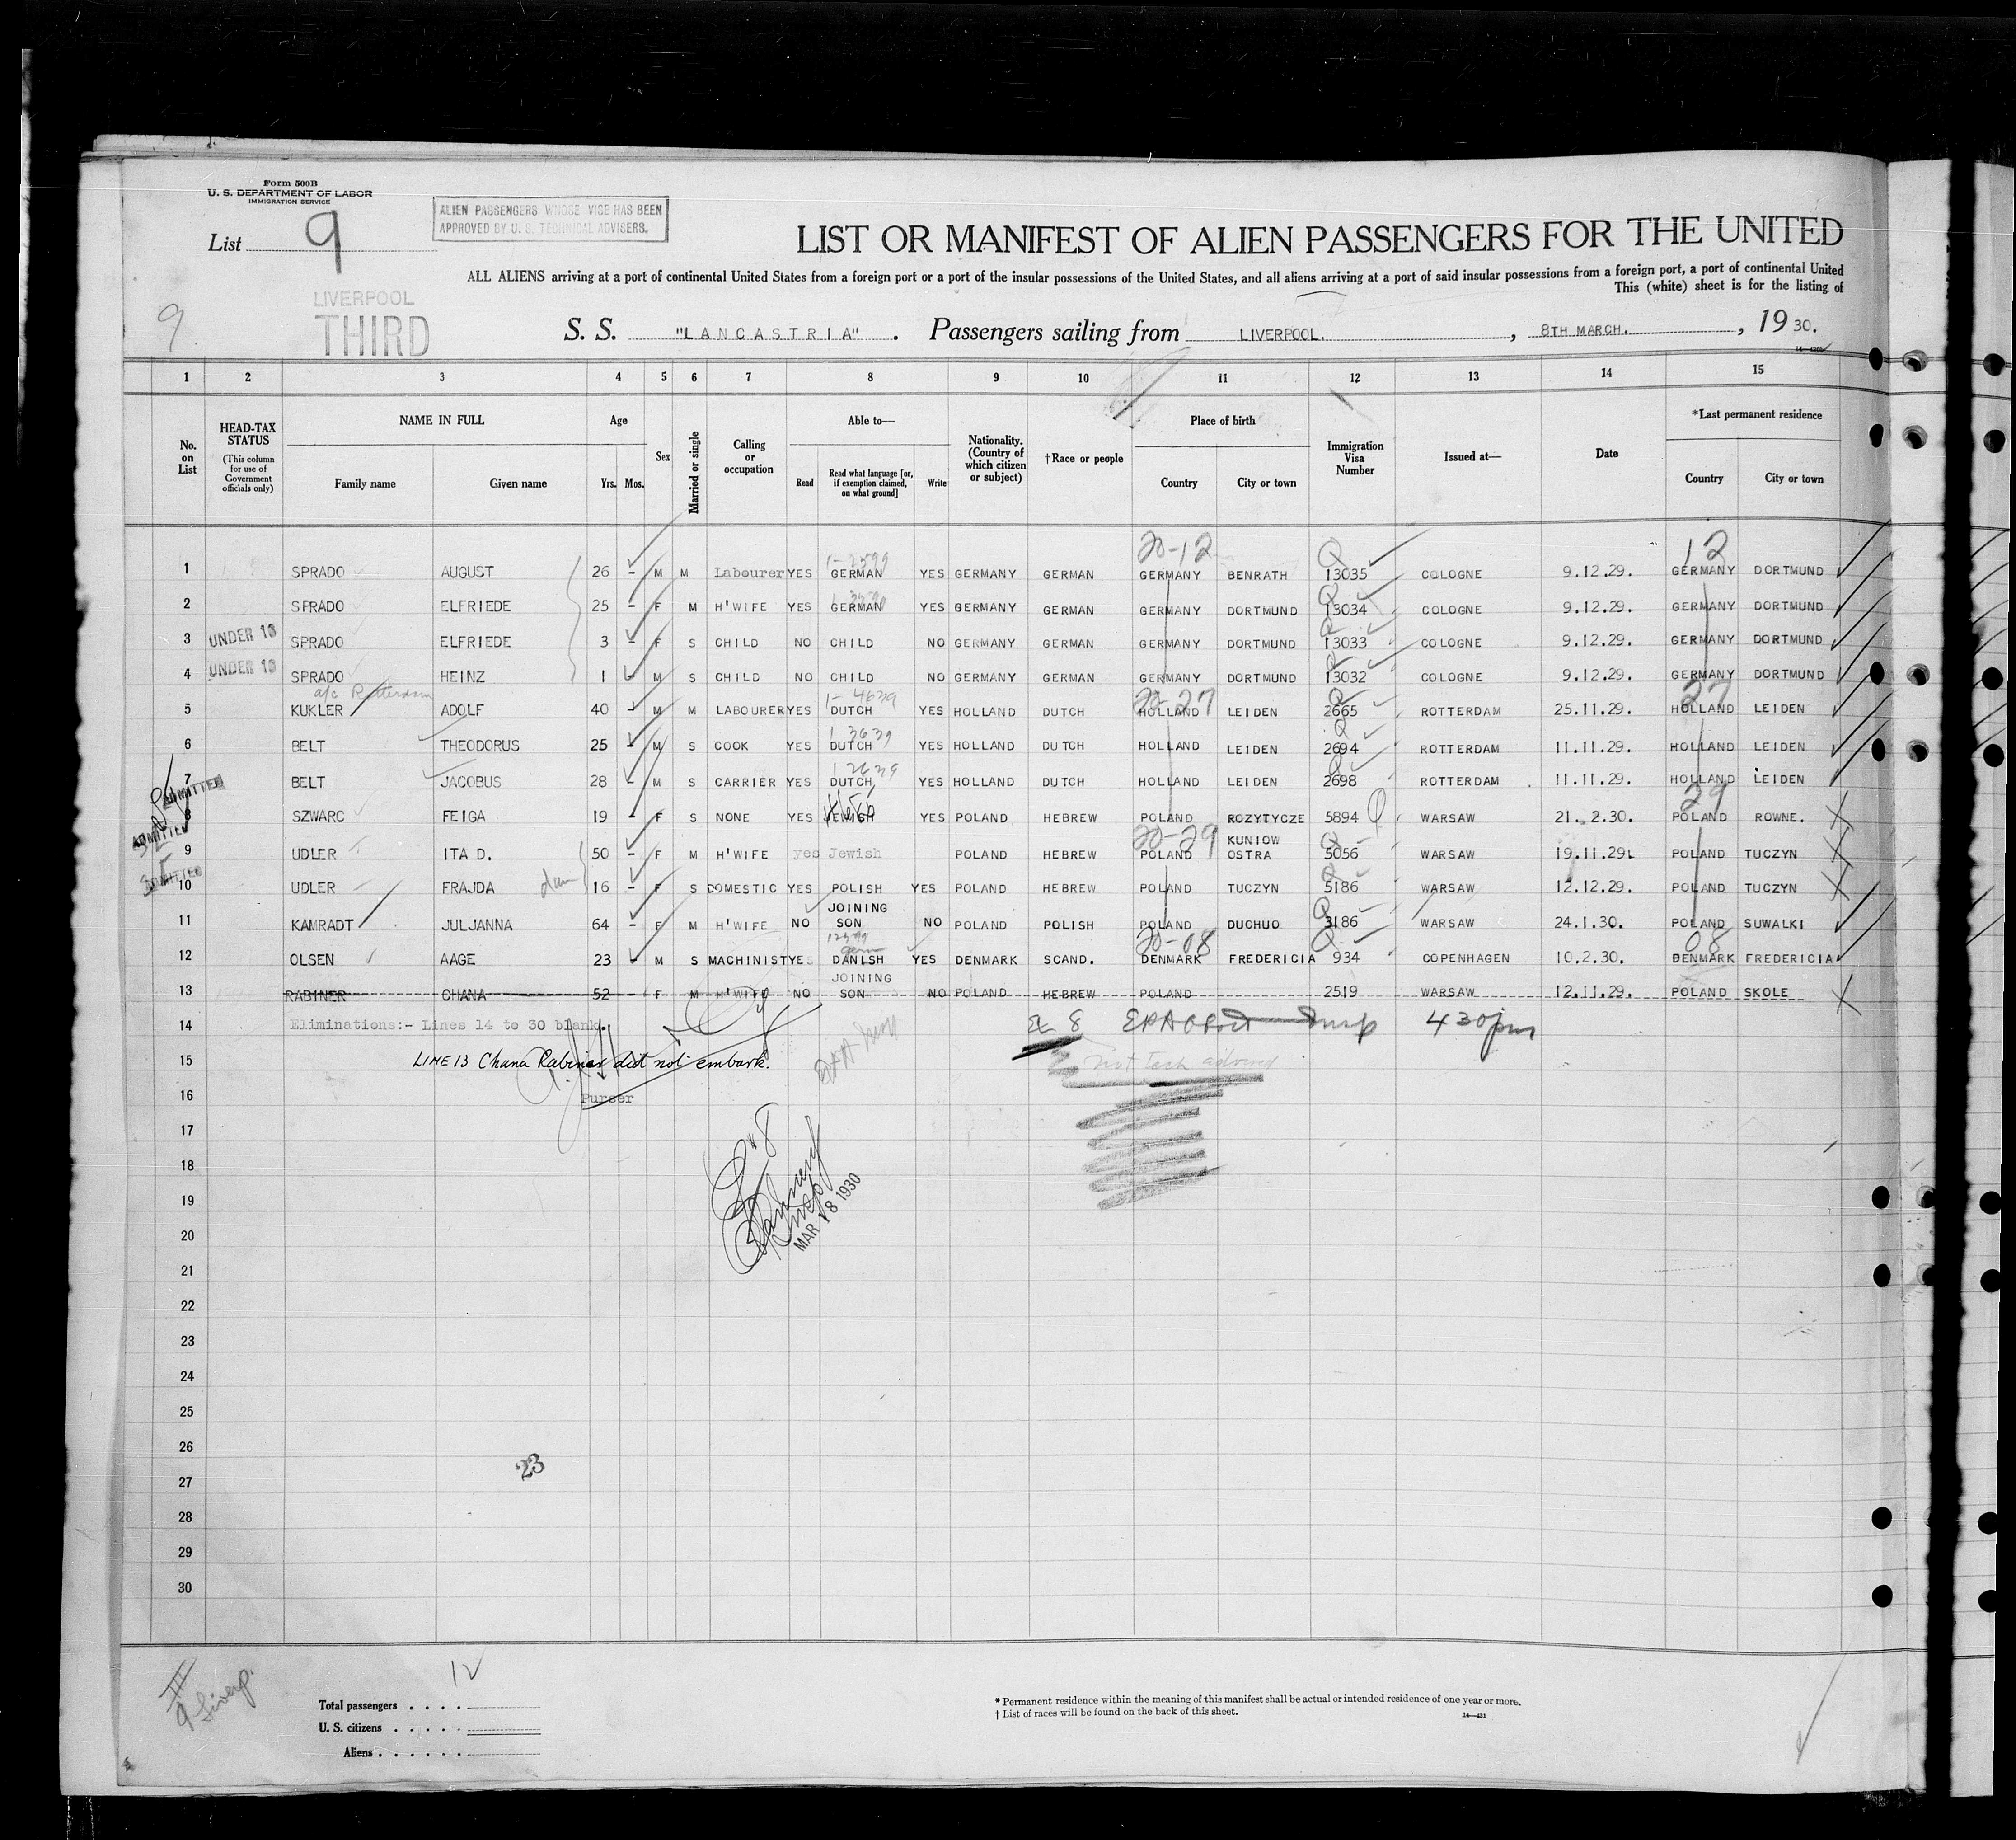 Form 500B
U. S. DEPARTMENT OF LABOR
IMMIGRATION SERVICE
List 9
ALIEN PASSENGERS WHOSE VICE HAS BEEN
APPROVED BY U. S. TECHNICAL ADVISERS.
LIST OR MANIFEST OF ALIEN PASSENGERS FOR THE UNITED
ALL ALIENS arriving at a port of continental United States from a foreign port or a port of the insular possessions of the United States, and all aliens arriving at a port of said insular possessions from a foreign port, a port of continental United
This (white) sheet is for the listing of
9.
LIVERPOOL
THIRD
S. S. "LANCASTRIA". Passengers sailing from LIVERPOOL. , 8TH MARCH. , 19 30.
1 2 3 4 5 6 7 8 9 10 11 12 13 14 15
No. on List
HEAD-TAX STATUS
(This column for use of Government officials only)
NAME IN FULL
Family name Given name
Age
Yrs. Mos.
Sex
Married or single
Calling or occupation
Able to—
Read
Read what language [or, if exemption claimed, on what ground]
Write
Nationality. (Country of which citizen or subject)
†Race or people
Place of birth
Country City or town
Immigration Visa Number
Issued at—
Date
*Last permanent residence
Country City or town
20-12 Q 12
1 SPRADO AUGUST 26 - M M Labourer YES GERMAN YES GERMANY GERMAN GERMANY BENRATH 13035 COLOGNE 9.12.29. GERMANY DORTMUND
2 SPRADO ELFRIEDE 25 - F M H'WIFE YES GERMAN YES GERMANY GERMAN GERMANY DORTMUND 13034 COLOGNE 9.12.29. GERMANY DORTMUND
3 UNDER 16 SPRADO ELFRIEDE 3 - F S CHILD NO CHILD NO GERMANY GERMAN GERMANY DORTMUND 13033 COLOGNE 9.12.29. GERMANY DORTMUND
4 UNDER 16 SPRADO HEINZ 1 M S CHILD NO CHILD NO GERMANY GERMAN GERMANY DORTMUND 13032 COLOGNE 9.12.29. GERMANY DORTMUND
a/c Rotterdam 1-4639 20-27 27
5 KUKLER ADOLF 40 - M M LABOURER YES DUTCH YES HOLLAND DUTCH HOLLAND LEIDEN 2665 ROTTERDAM 25.11.29. HOLLAND LEIDEN
1 3639
6 BELT THEODORUS 25 - M S COOK YES DUTCH YES HOLLAND DUTCH HOLLAND LEIDEN 2694 ROTTERDAM 11.11.29. HOLLAND LEIDEN
1 2639
7 BELT JACOBUS 28 - M S CARRIER YES DUTCH YES HOLLAND DUTCH HOLLAND LEIDEN 2698 ROTTERDAM 11.11.29. HOLLAND LEIDEN
ADMITTED 29
8 SZWARC FEIGA 19 - F S NONE YES JEWISH YES POLAND HEBREW POLAND ROZYTYCZE 5894 Q WARSAW 21. 2.30. POLAND ROWNE.
ADMITTED 20-29 KUNIOW
9 UDLER ITA D. 50 - F M H'WIFE yes Jewish POLAND HEBREW POLAND OSTRA 5056 WARSAW 19.11.29. POLAND TUCZYN
ADMITTED
10 UDLER FRAJDA dau 16 - F S DOMESTIC YES POLISH YES POLAND HEBREW POLAND TUCZYN 5186 WARSAW 12.12.29. POLAND TUCZYN
JOINING
11 KAMRADT JULJANNA 64 - F M H'WIFE NO SON NO POLAND POLISH POLAND DUCHUO 3186 WARSAW 24.1.30. POLAND SUWALKI
20-08 08
12 OLSEN AAGE 23 - M S MACHINIST YES DANISH YES DENMARK SCAND. DENMARK FREDERICIA 934 COPENHAGEN 10.2.30. DENMARK FREDERICIA
JOINING
13 RABINER CHANA 52 - F M H'WIFE NO SON NO POLAND HEBREW POLAND 2519 WARSAW 12.11.29. POLAND SKOLE
14 Eliminations:- Lines 14 to 30 blank. 430pm
15 LINE 13 Chana Rabiner did not embark. not tech advised
16 Purser
17
18
19
MAR 18 1930
20
21
22
23
24
25
26
23
27
28
29
30
9 Liverp. 12
Total passengers
U. S. citizens
Aliens
* Permanent residence within the meaning of this manifest shall be actual or intended residence of one year or more.
† List of races will be found on the back of this sheet.